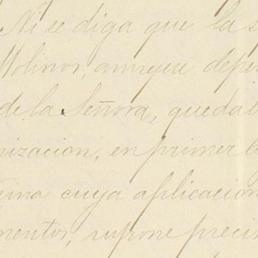 Ni se diga que la s
Molinos, aunque depe
de la Señora, quedab
nización, en primer l
ina cuya aplicacion
mentos, supone preci